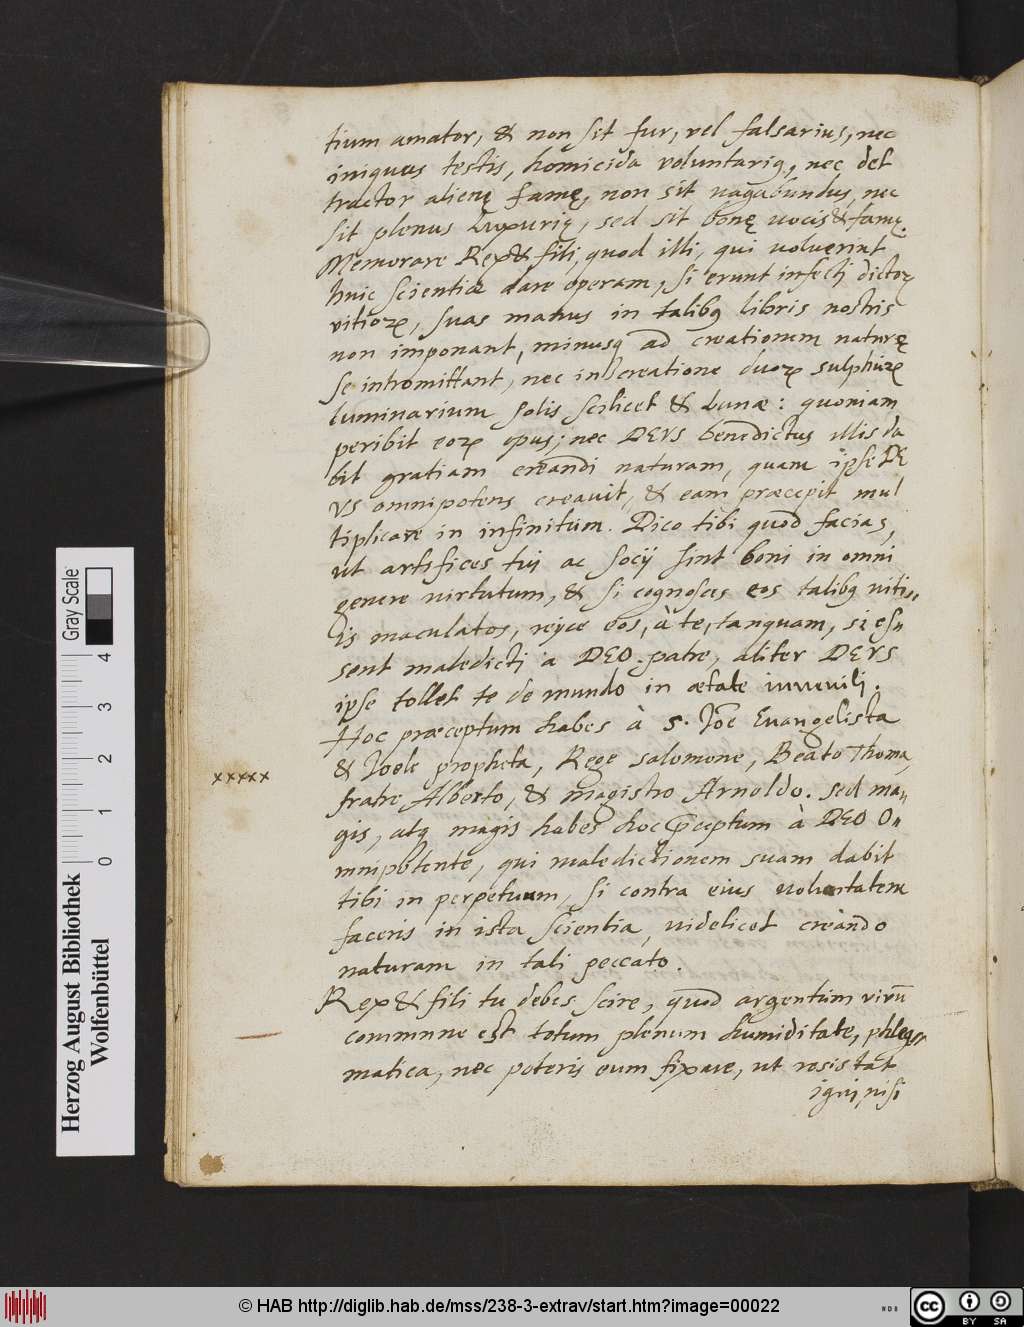 tium amator, & non sit fur, vel falsarius, nec
iniquus testis, homicida voluntariꝯ, nec det
tractor alienę famę, non sit vagabundus, nec
sit plenus Luxurię, sed sit bonę vocis & famę.
Memorare Rex & fili, quod illi, qui voluerint
huic scientiæ dare operam, si erunt infecti dictoꝝ
vitioꝝ, suas manus in talibꝯ libris nostris
non imponant, minusqꝫ ad creationem naturę
se intromittant, nec in creatione duoꝝ sulphuꝝ
luminarium solis scilicet & Lunæ: quoniam
peribit eoꝝ opus; nec DEVS benedictus illis da
bit gratiam creandi naturam, quam ipse DE
VS omnipotens creavit, & eam præcepit mul
tiplicare in infinitum. Dico tibi quod facias,
ut artifices tui ac socij sint boni in omni
genere virtutum, & si cognosces eos talibꝯ viti„
is maculatos, reijce eos, à te, tanquam, si es„
sent maledicti à DEO patre, aliter DEVS
ipse tollet te de mundo in ætate iuvenili.
Hoc præceptum habes à S. Joe Evangelista
& Joele propheta, Rege Salomone, Beato Thoma,
xxxxx
fratre Alberto, & magistro Arnoldo. sed ma„
gis, atqꝫ magis habes hoc p̄ceptum à DEO O„
mnipotente, qui maledictionem suam dabit
tibi in perpetuum, si contra eius voluntatem
faceris in ista scientia, videlicet creando
naturam in tali peccato.
Rex & fili tu debes scire, quod argentum vivū
commune est totum plenum humiditate, phleg„
matica, nec poteris eum fixare, ut resistat
igni, nisi
Herzog August Bibliothek
Wolfenbüttel
0 1 2 3 4
Gray Scale
© HAB http://diglib.hab.de/mss/238-3-extrav/start.htm?image=00022
cc BY SA